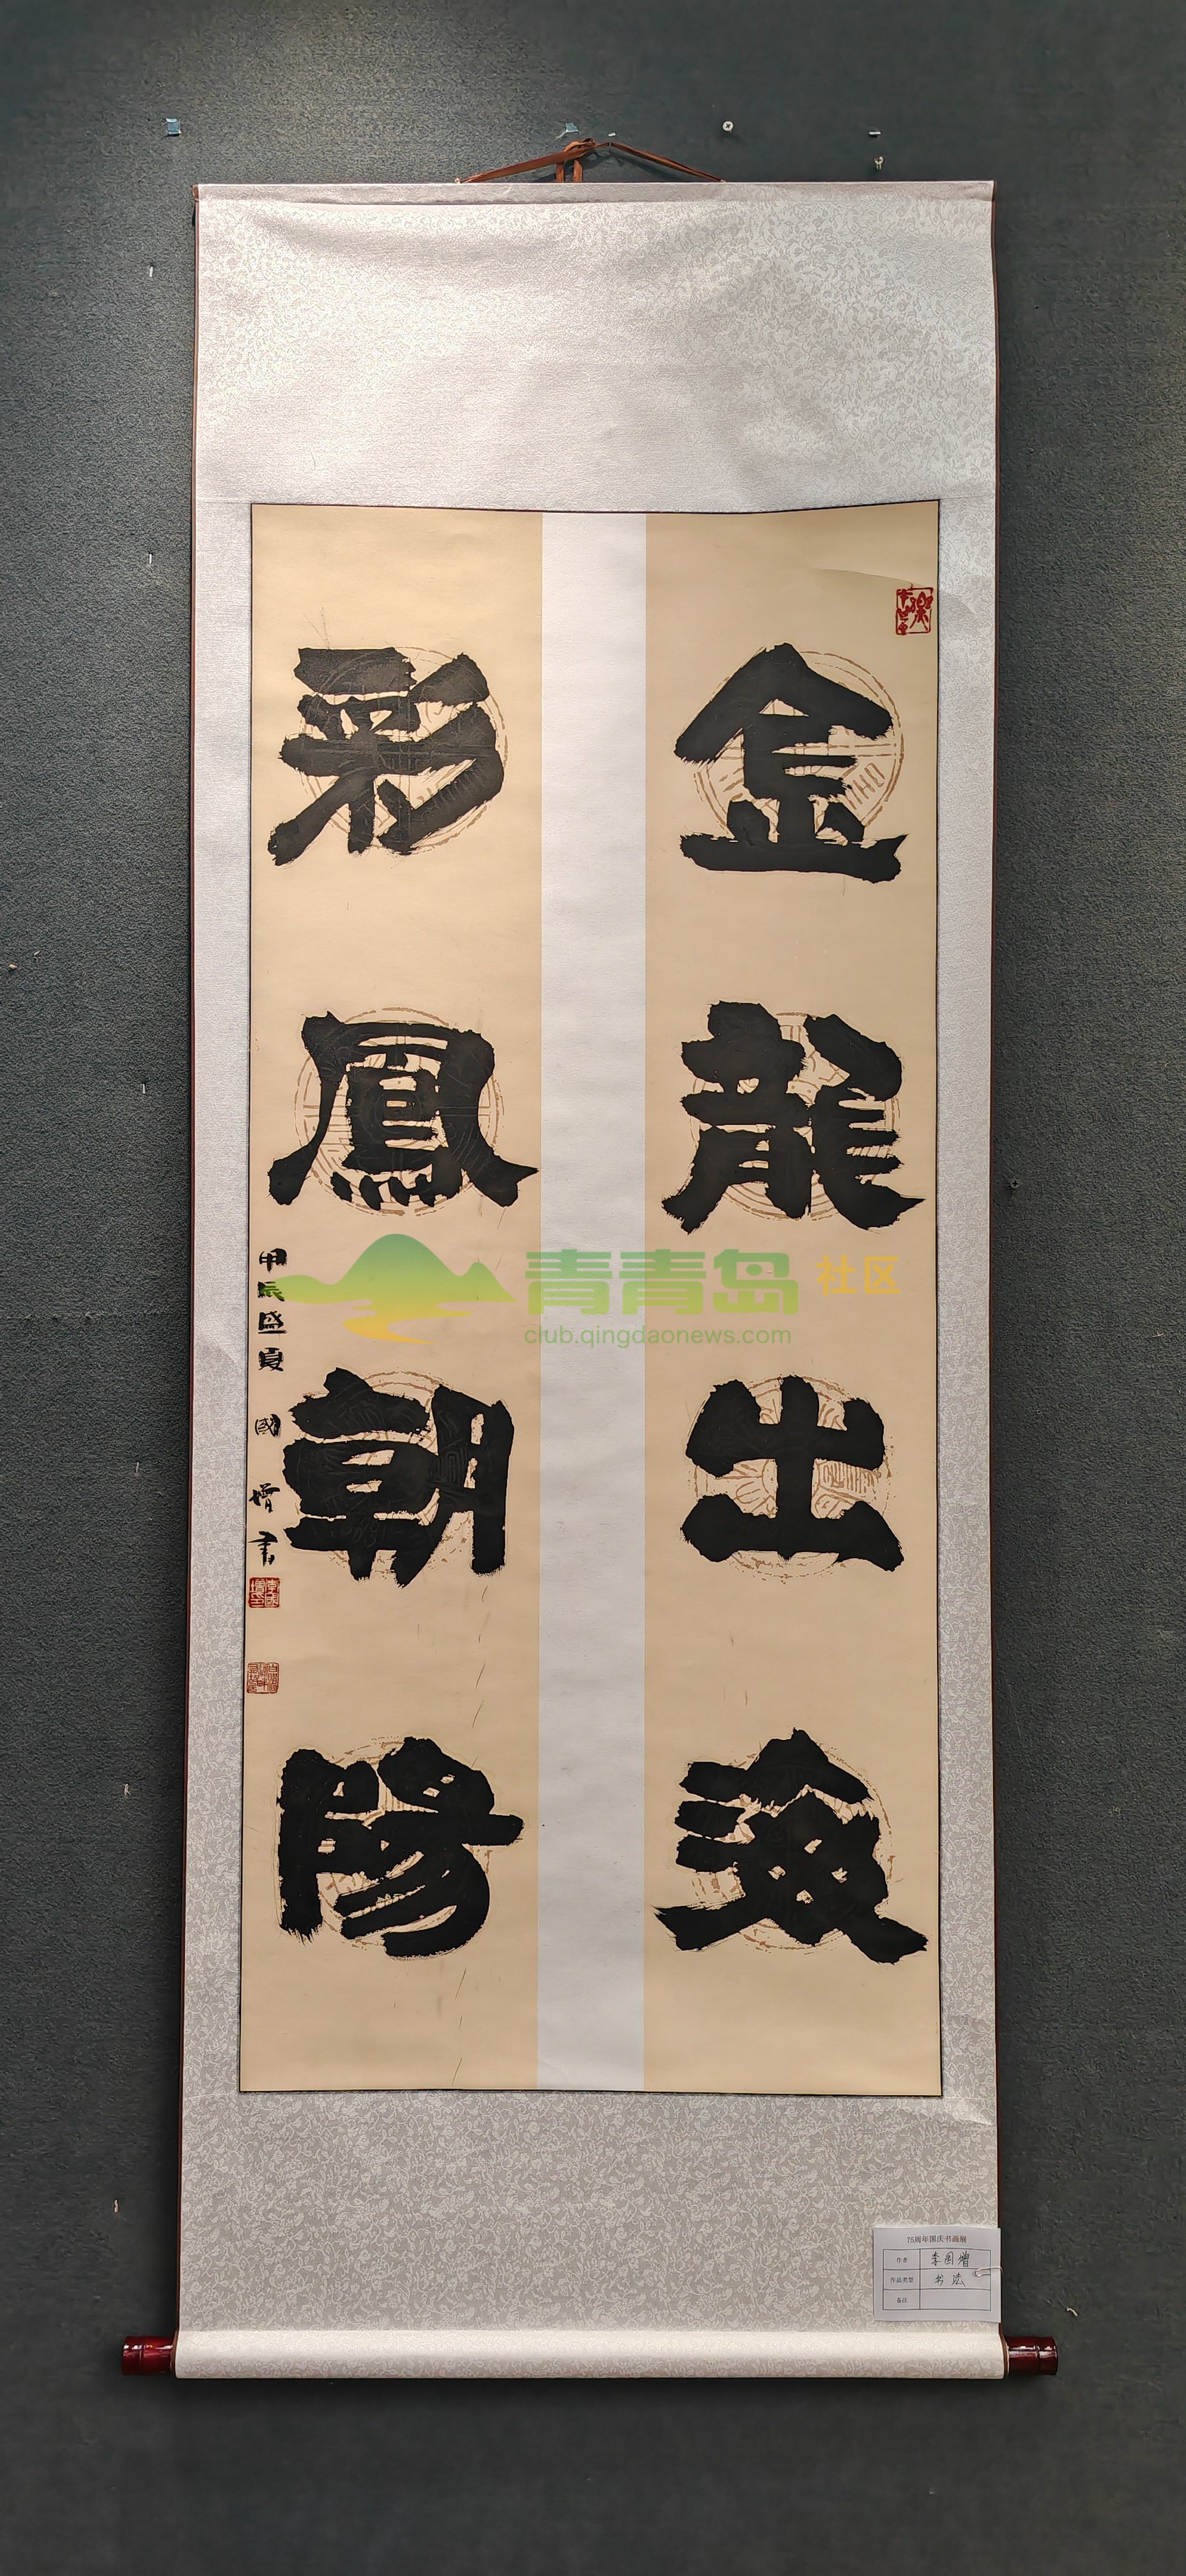 金龍出海
彩鳳朝陽
甲辰盛夏 國增書
青青岛社区
club.qingdaonews.com
75周年国庆书画展
作者 李国增
作品类型 书法
备注